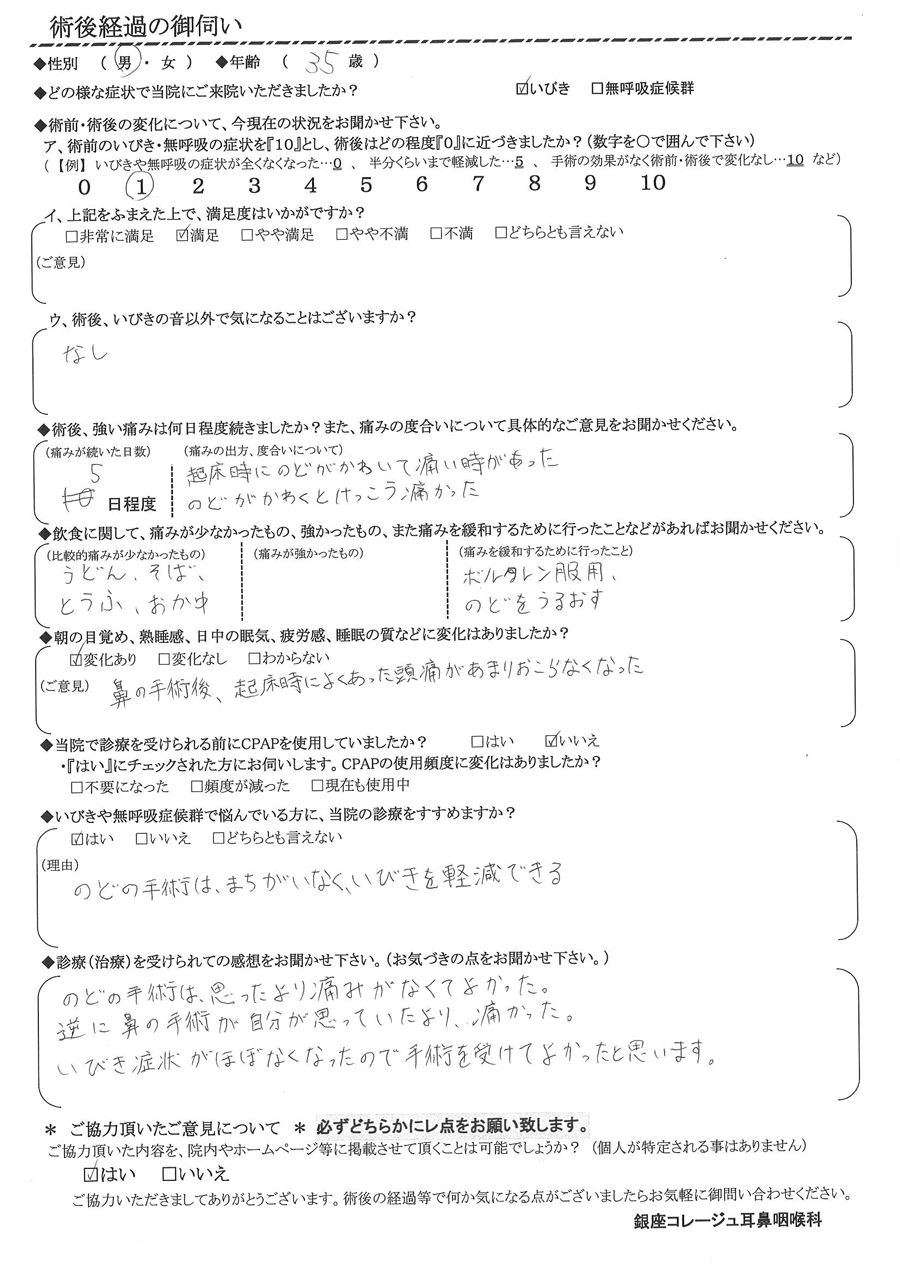 術後経過の御伺い
◆性別 ( 男 ・ 女 ) ◆年齢 ( 35 歳 )
◆どの様な症状で当院にご来院いただきましたか? ☑いびき □無呼吸症候群
◆術前・術後の変化について、今現在の状況をお聞かせ下さい。
ア、術前のいびき・無呼吸の症状を『10』とし、術後はどの程度『0』に近づきましたか?(数字を○で囲んで下さい)
(【例】 いびきや無呼吸の症状が全くなくなった…0 、 半分くらいまで軽減した…5 、 手術の効果がなく術前・術後で変化なし…10 など)
0 1 2 3 4 5 6 7 8 9 10
イ、上記をふまえた上で、満足度はいかがですか?
□非常に満足 ☑満足 □やや満足 □やや不満 □不満 □どちらとも言えない
(ご意見)
ウ、術後、いびきの音以外で気になることはございますか?
なし
◆術後、強い痛みは何日程度続きましたか?また、痛みの度合いについて具体的なご意見をお聞かせください。
(痛みが続いた日数) (痛みの出方、度合いについて)
5 起床時にのどがかわいて痛い時があった
日程度 のどがかわくとけっこう痛かった
◆飲食に関して、痛みが少なかったもの、強かったもの、また痛みを緩和するために行ったことなどがあればお聞かせください。
(比較的痛みが少なかったもの) (痛みが強かったもの) (痛みを緩和するために行ったこと)
うどん、そば、 ボルタレン服用、
とうふ、おかゆ のどをうるおす
◆朝の目覚め、熟睡感、日中の眠気、疲労感、睡眠の質などに変化はありましたか?
☑変化あり □変化なし □わからない
(ご意見) 鼻の手術後、起床時によくあった頭痛があまりおこらなくなった
◆当院で診療を受けられる前にCPAPを使用していましたか? □はい ☑いいえ
・『はい』にチェックされた方にお伺いします。CPAPの使用頻度に変化はありましたか?
□不要になった □頻度が減った □現在も使用中
◆いびきや無呼吸症候群で悩んでいる方に、当院の診療をすすめますか?
☑はい □いいえ □どちらとも言えない
(理由)
のどの手術は、まちがいなく、いびきを軽減できる
◆診療(治療)を受けられての感想をお聞かせ下さい。(お気づきの点をお聞かせ下さい。)
のどの手術は、思ったより痛みがなくてよかった。
逆に鼻の手術が自分が思っていたより、痛かった。
いびき症状がほぼなくなったので手術を受けてよかったと思います。
＊ ご協力頂いたご意見について ＊ 必ずどちらかにレ点をお願い致します。
ご協力頂いた内容を、院内やホームページ等に掲載させて頂くことは可能でしょうか? (個人が特定される事はありません)
☑はい □いいえ
ご協力いただきましてありがとうございます。術後の経過等で何か気になる点がございましたらお気軽に御問い合わせください。
銀座コレージュ耳鼻咽喉科